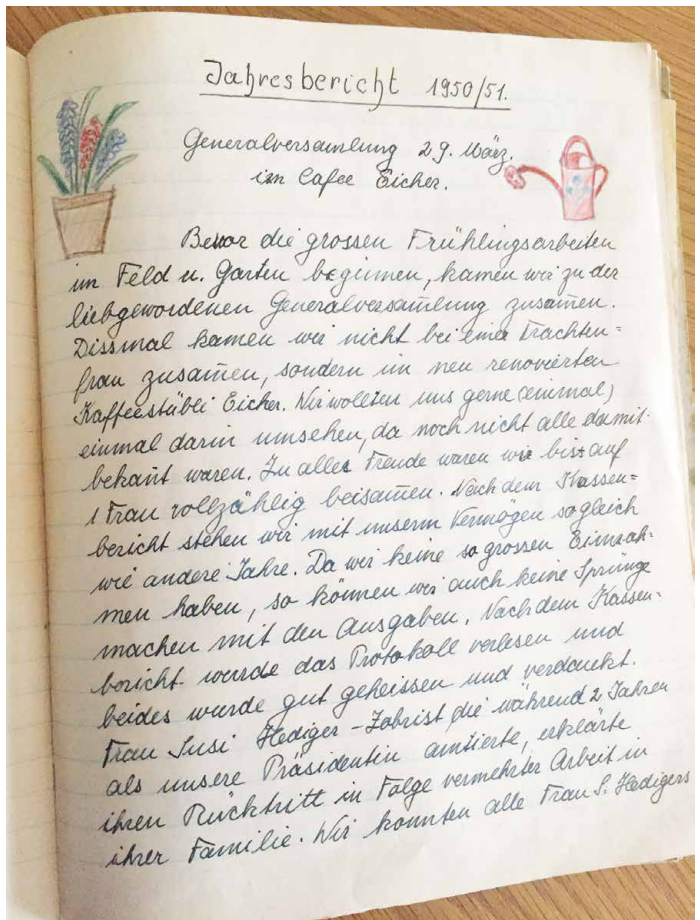 Jahresbericht 1950/51.
Generalversamlung 29. März.
im Cafee Eicher.
Bevor die grossen Frühlingsarbeiten
im Feld u. Garten beginnen, kamen wir zu der
liebgewordenen Generalversam̄lung zusam̄en.
Dissmal kamen wir nicht bei einer Trachten=
frau zusam̄en, sondern im neu renovierten
Kaffeestübli Eicher. Wir wollten uns gerne (einmal)
einmal darin umsehen, da noch nicht alle damit
bekan̄t waren. Zu aller Freude waren wir bis auf
1 Frau vollzählig beisam̄en. Nach dem Kassen=
bericht stehen wir mit unserm Vermögen sogleich
wie andere Jahre. Da wir keine so grossen Einnah-
men haben, so können wir auch keine Sprünge
machen mit den Ausgaben. Nach dem Kassen-
bericht wurde das Protokoll verlesen und
beides wurde gut geheissen und verdankt.
Frau Susi Hediger-Zobrist, die während 2 Jahren
als unsere Präsidentin amtierte, erklärte
ihren Rücktritt in Folge vermehrter Arbeit in
ihrer Familie. Wir konnten alle Frau S. Hedigers